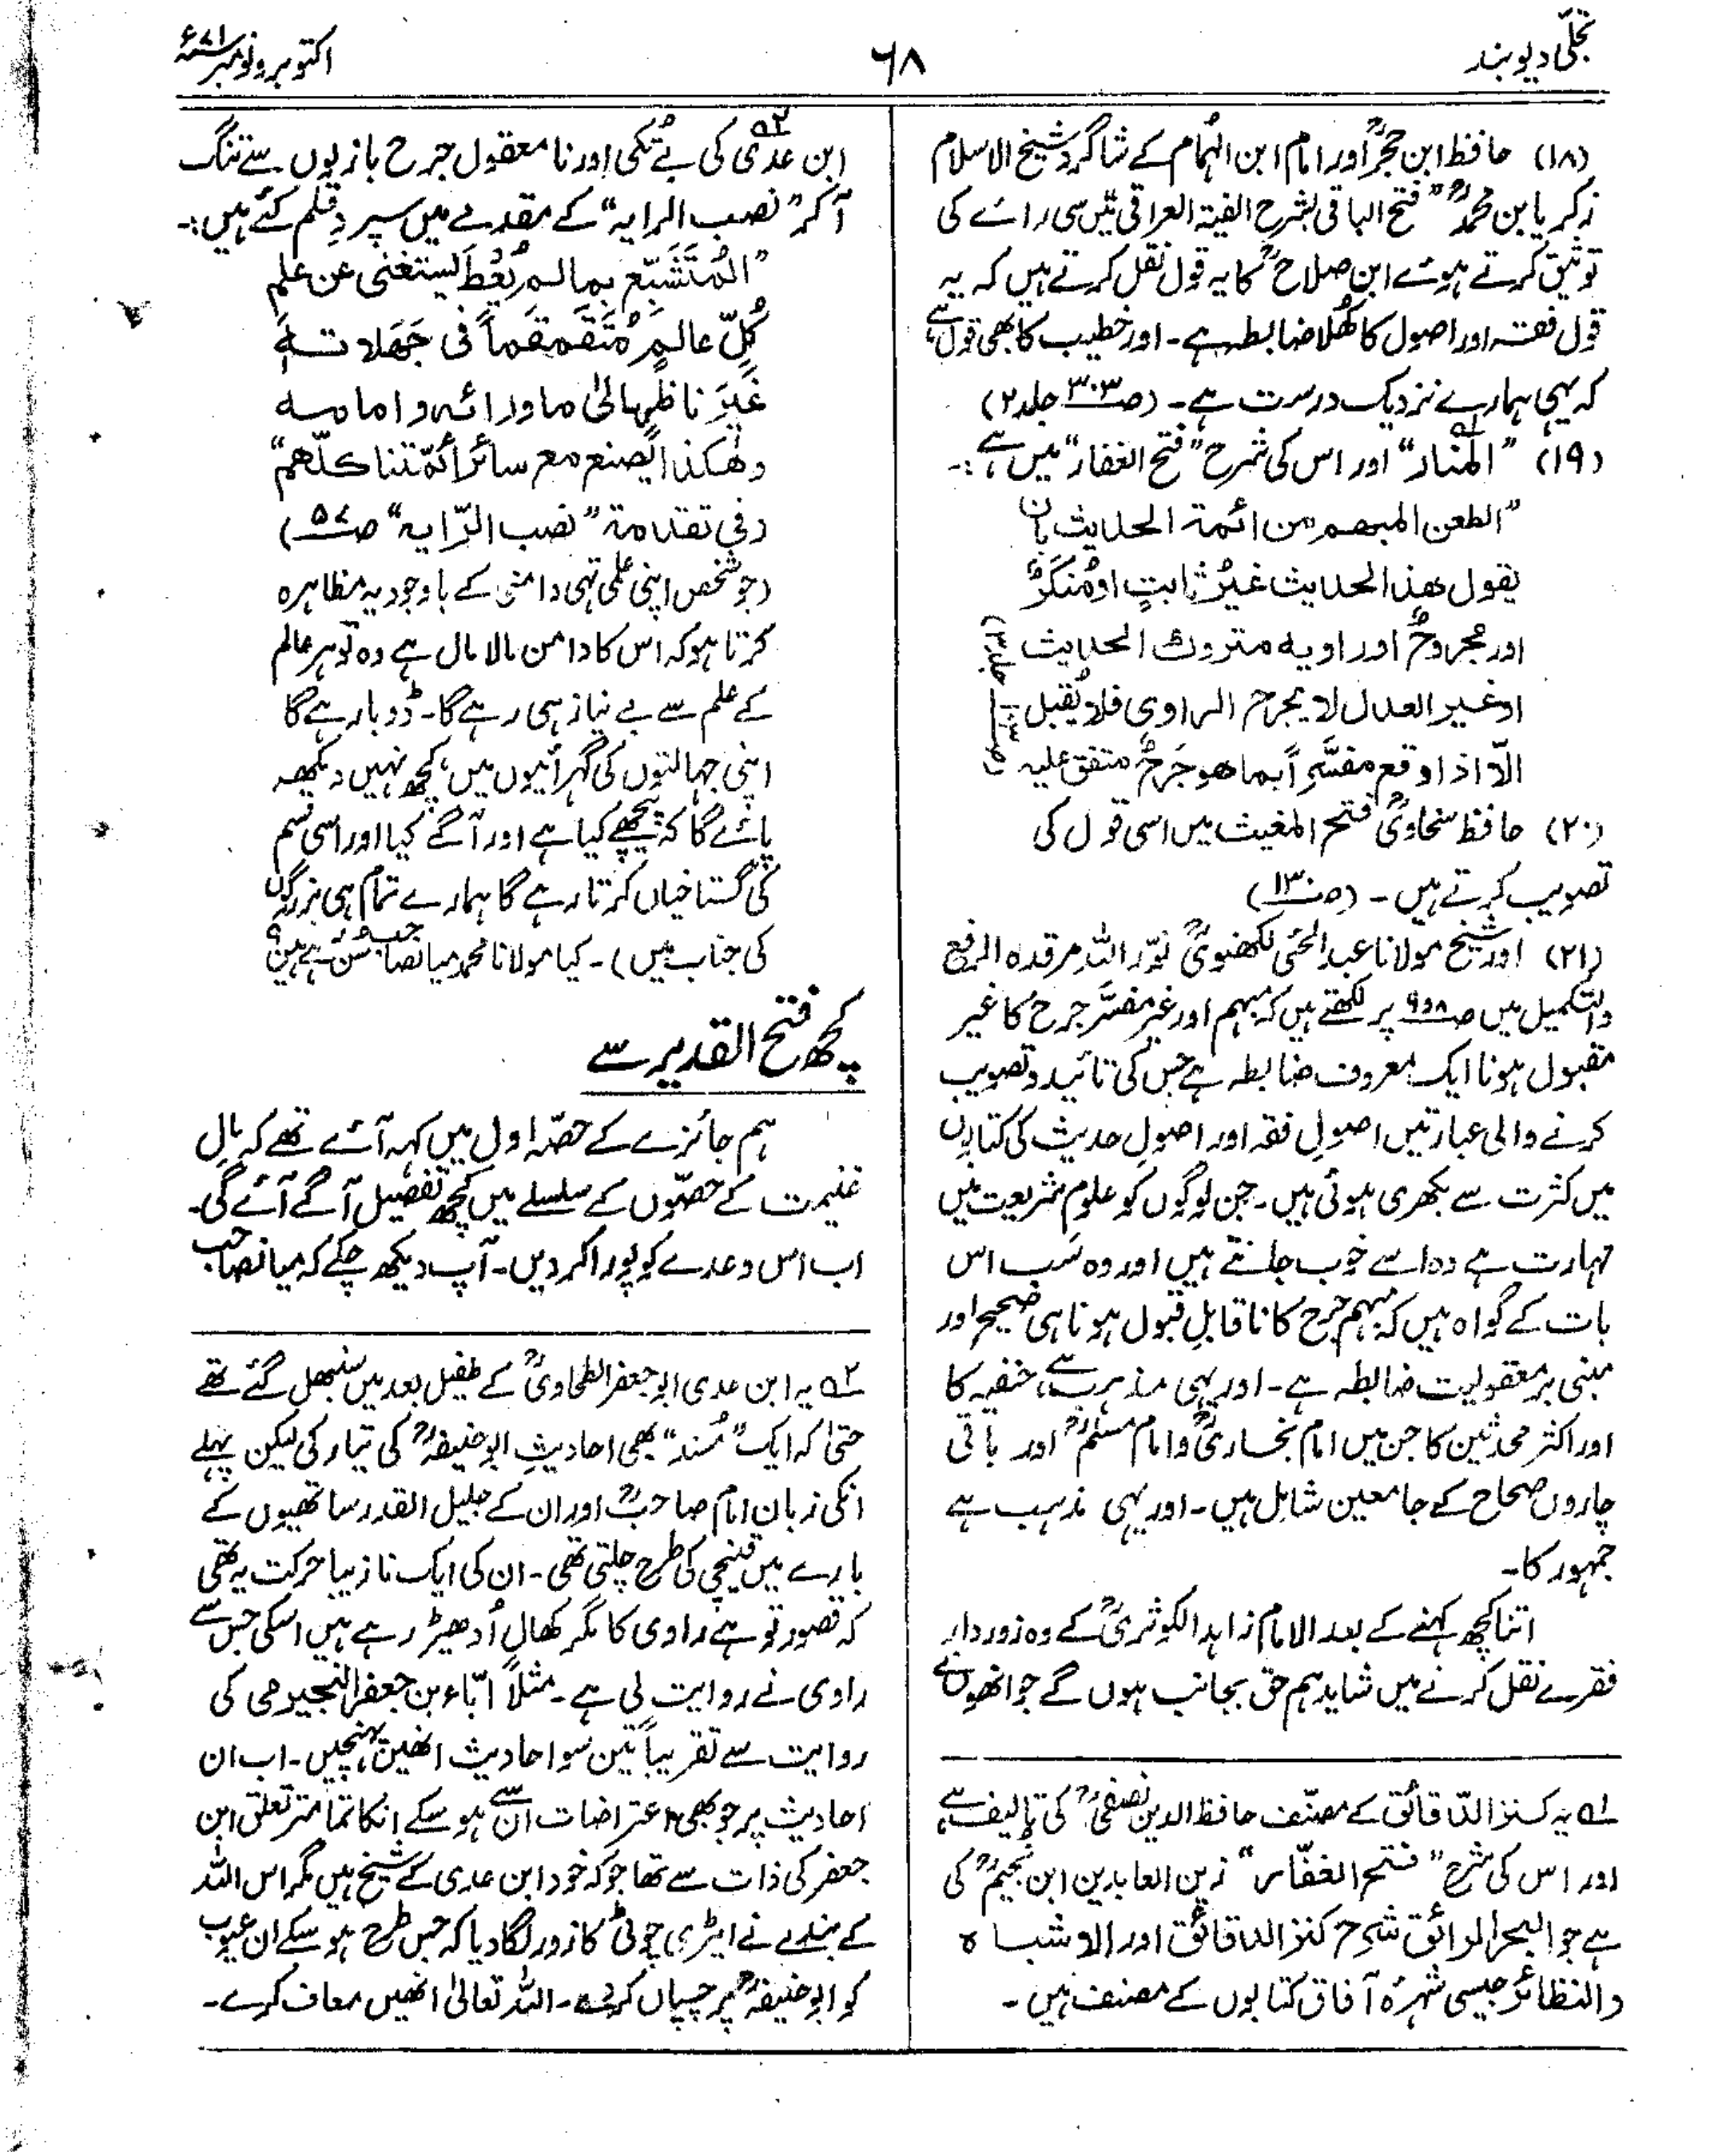 تجلّی دیوبند
۶۸
اکتوبر و نومبر ۷۱ء
(۱۸) حافظ ابن حجرؒ اور امام ابن الہمام کے شاگرد شیخ الاسلام
زکریا بن محمدؒ "فتح الباقی بشرح الفیۃ العراقی" میں اسی رائے کی
توثیق کرتے ہوئے ابن صلاحؒ کا یہ قول نقل کرتے ہیں کہ یہ
قول فقہ اور اصول کا کھُلا ضابطہ ہے۔ اور خطیب کا بھی قول ہے
کہ یہی ہمارے نزدیک درست ہے۔ (ص۳۰۳ جلد ۲)
(۱۹) "المنار"؎۱ اور اس کی شرح "فتح الغفار" میں ہے:۔
"الطعن المبھم من ائمۃ الحدیث بان
یقول ھٰذا الحدیث غیرُ ثابتٍ او مُنکَرٌ
اور مجروحٌ اور راویه متروك الحدیث
اوغیر العدل لا یجرح الراوی فلا یُقبل
الّا اذا وقع مفسَّراً بما ھو جَرحٌ متفق علیه
(۲۰) حافظ سخاویؒ فتح المغیث میں اسی قول کی
تصویب کرتے ہیں۔ (ص۱۳۰)
(۲۱) اور شیخ مولانا عبدالحئی لکھنویؒ نوّر اللہ مرقدہ الرفع
والتکمیل میں ص۸و۹ پر لکھتے ہیں کہ مبہم اور غیر مفسَّر جرح کا غیر
مقبول ہونا ایک معروف ضابطہ ہے جس کی تائید و تصویب
کرنے والی عبارتیں اصولِ فقہ اور اصولِ حدیث کی کتابوں
میں کثرت سے بکھری ہوئی ہیں۔ جن لوگوں کو علومِ شریعت میں
مہارت ہے وہ اسے خوب جانتے ہیں اور وہ سب اس
بات کے گواہ ہیں کہ مبہم جرح کا ناقابلِ قبول ہونا ہی صحیح اور
مبنی بر معقولیت ضابطہ ہے۔ اور یہی مذہب ہے حنفیہ کا
اور اکثر محدثین کا جن میں امام بخاریؒ و امام مسلمؒ اور باقی
چاروں صحاح کے جامعین شامل ہیں۔ اور یہی مذہب ہے
جمہور کا۔
اتنا کچھ کہنے کے بعد الامام زاہد الکوثریؒ کے وہ زور دار
فقرے نقل کرنے میں شاید ہم حق بجانب ہوں گے جو انھوں نے
؎۱ یہ کنز الدقائق کے مصنّف حافظ الدین نصفیؒ کی تالیف ہے
اور اس کی شرح "فتح الغفّار" زین العابدین ابن نجیمؒ کی
ہے جو البحر الرائق شرح کنز الدقائق اور الاشباہ
والنظائر جیسی شہرۂ آفاق کتابوں کے مصنف ہیں۔
ابن عدیؒ؎۲ کی بے تُکی اور نا معقول جرح بازیوں سے تنگ
آ کر "نصب الرایہ" کے مقدمے میں سپردِ قلم کئے ہیں:۔
"المُتَشَبّع بمالم یُعْطَ لیستغنی عن علم
کُلِّ عالمٍ مُتَقَمقَماً فی جَھَلاتــهٖ
غَیرَ ناظرٍ الیٰ ما ورائــه و امامــه
وھٰکذا یَصنع مع سائر ائمّتنا کلّھم"
(فی تقدمۃ "نصب الرّایہ" ص۵۷)
(جو شخص اپنی علمی تہی دامنی کے باوجود یہ مظاہرہ
کرتا ہو کہ اس کا دامن مالا مال ہے وہ تو ہر عالم
کے علم سے بے نیاز ہی رہے گا۔ ڈوبا رہے گا
اپنی جہالتوں کی گہرائیوں میں، کچھ نہیں دیکھ
پائے گا کہ پیچھے کیا ہے اور آگے کیا اور اسی قسم
کی گستاخیاں کرتا رہے گا ہمارے تمام ہی بزرگوں
کی جناب میں)۔ کیا مولانا محمد میاں صاحب سُن رہے ہیں؟
کچھ فتح القدیر سے
ہم جائزے کے حصّہ اول میں کہہ آئے تھے کہ مالِ
غنیمت کے حصّوں کے سلسلے میں کچھ تفصیل آگے آئے گی۔
اب اس وعدے کو پورا کر دیں۔ آپ دیکھ چکے کہ میاں صاحب
؎۲ یہ ابن عدی ابو جعفر الطحاویؒ کے طفیل بعد میں سنبھل گئے تھے
حتیٰ کہ ایک "مُسند" بھی احادیثِ ابو حنیفہؒ کی تیار کی لیکن پہلے
انکی زبان امام صاحبؒ اور ان کے جلیل القدر ساتھیوں کے
بارے میں قینچی کی طرح چلتی تھی۔ ان کی ایک نازیبا حرکت یہ تھی
کہ قصور تو ہے راوی کا مگر کھال اُدھیڑ رہے ہیں اسکی جس سے
راوی نے روایت لی ہے۔ مثلاً ابّاء بن جعفر النجیرمی کی
روایت سے تقریباً تین سو احادیث انھیں پہنچیں۔ اب ان
احادیث پر جو بھی اعتراضات ان سے ہو سکے انکا تمامتر تعلق ابن
جعفر کی ذات سے تھا جو کہ خود ابن عدی کے شیخ ہیں مگر اس اللہ
کے بندے نے ایڑی چوٹی کا زور لگا دیا کہ جس طرح ہو سکے ان عیوب
کو ابو حنیفہؒ پر چسپاں کر دے۔ اللہ تعالیٰ انھیں معاف کرے۔